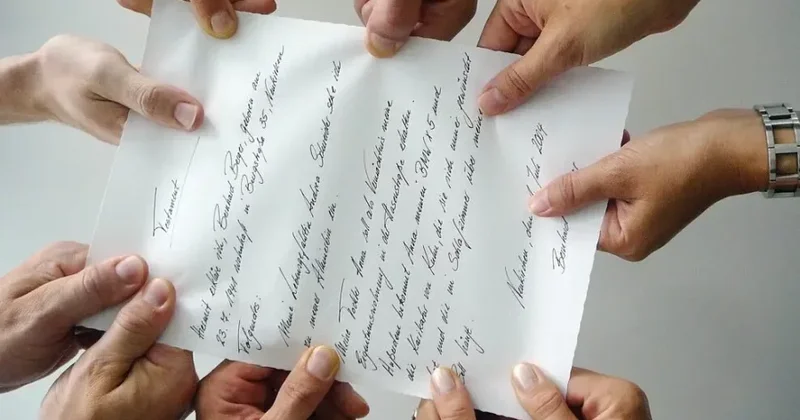 Testament
Hiermit erkläre ich, Bernhard Berger, geboren am
23.7.1941 wohnhaft in Burgstraße 35, Neukirchen
Folgendes:
Meine Lebensgefährtin Andrea Schneider setze ich
zu meiner Alleinerbin ein.
Meine Tochter Anna soll als Vermächtnis meine
Eigentumswohnung in der Hasenstraße erhalten.
Außerdem bekommt Anna meinen BMW X5 und
die von Klee, die sie sich immer gewünscht
hat und die im Schlafzimmer über
hängt.
Neukirchen, den 1. Juli 2004
Bernhard